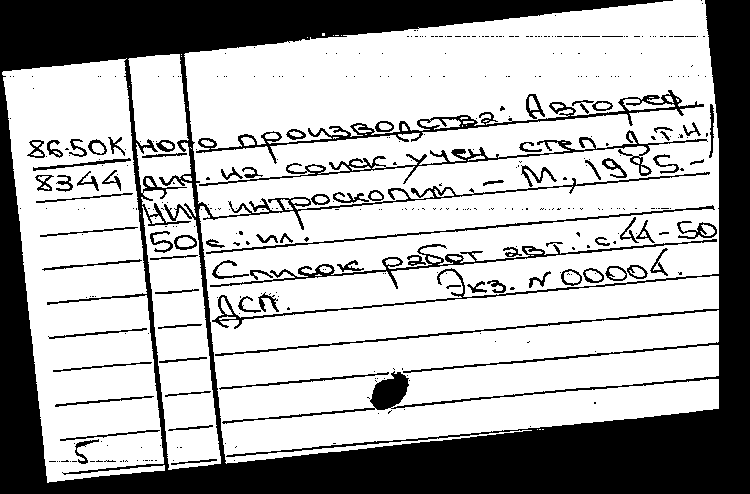 86.50К ного производства: Автореф.
8344 дис. на соиск. учен. степ. д.т.н.)
НИИ интроскопии. – М., 1985.–
50 с.: ил.
Список работ авт.: с. 44-50
ДСП. Экз. N 00004.
5